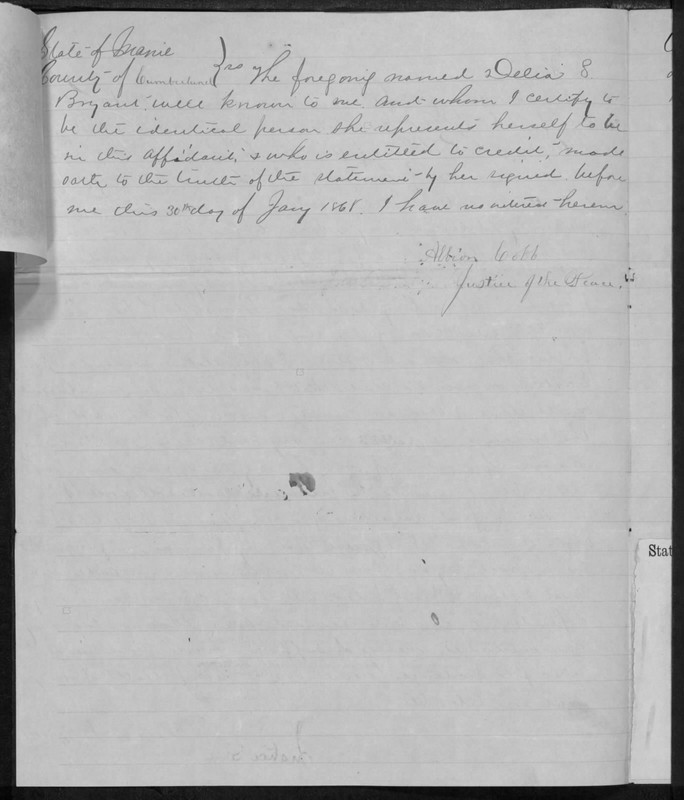 State of Maine
County of Cumberland } ss The foregoing named Delia S
Bryant, well known to me, and whom I certify to
be the identical person she represents herself to be
in this affidavit, & who is entitled to credit, made
oath to the truth of the statement by her signed before
me this 30th day of Jany 1868. I have no interest herein
Albion Cobb
Justice of the Peace.
Stat